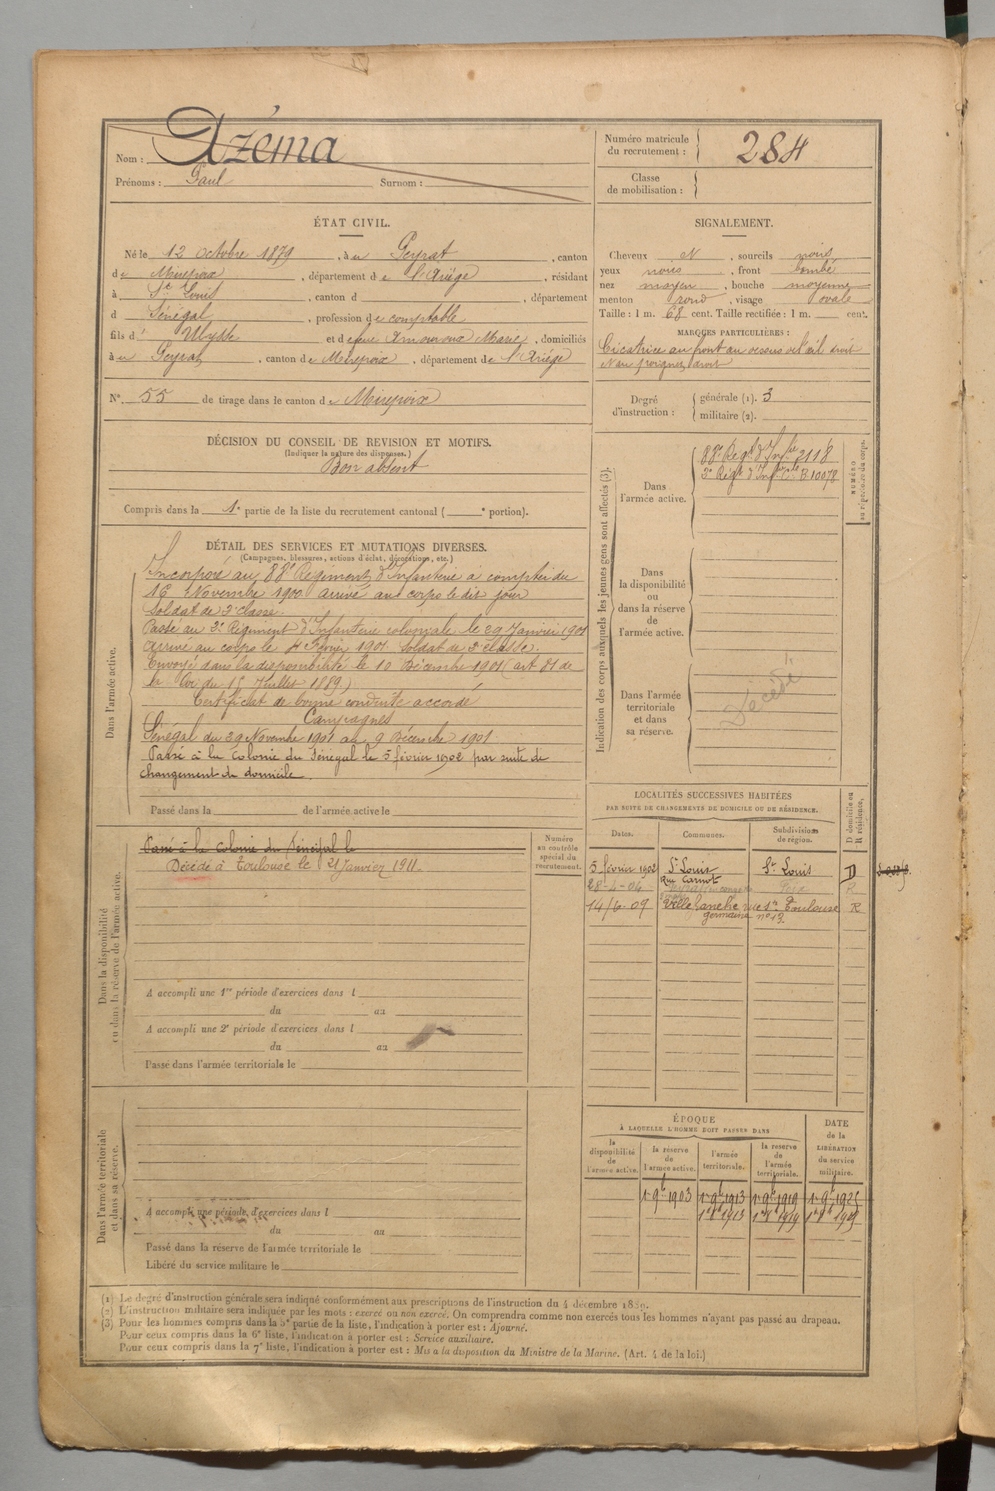 Nom : Azéma
Prénoms : Paul Surnom :
Numéro matricule du recrutement : 284
Classe de mobilisation :
ÉTAT CIVIL.
Né le 12 octobre 1879, à Peyrat, canton
de Mirepoix, département de l'Ariège, résidant
à St Louis, canton d , département
d Sénégal, profession de comptable
fils d' Ulysse et de feue Amouroux Marie, domiciliés
à Peyrat, canton de Mirepoix, département de l'Ariège
N° 55 de tirage dans le canton de Mirepoix
SIGNALEMENT.
Cheveux N, sourcils noirs
yeux noirs, front bombé
nez moyen, bouche moyenne
menton rond, visage ovale
Taille : 1 m. 68 cent. Taille rectifiée : 1 m. cent.
MARQUES PARTICULIÈRES :
Cicatrice au front au dessus de l'œil droit
et au poignet droit
Degré d'instruction : générale (1). 3
militaire (2).
DÉCISION DU CONSEIL DE REVISION ET MOTIFS.
(Indiquer la nature des dispenses.)
Bon absent
Compris dans la 1e partie de la liste du recrutement cantonal ( e portion).
DÉTAIL DES SERVICES ET MUTATIONS DIVERSES.
(Campagnes, blessures, actions d'éclat, décorations, etc.)
Dans l'armée active.
Incorporé au 88e Régiment d'Infanterie à compter du
16 Novembre 1900 arrivé au corps le dit jour
Soldat de 2e classe.
Passé au 2e Régiment d'Infanterie coloniale le 29 Janvier 1901
Arrivé au corps le 4 Février 1901 Soldat de 2e classe.
Envoyé dans la disponibilité le 10 Décembre 1901 (art 81 de
la Loi du 15 Juillet 1889)
Certificat de bonne conduite accordé
Campagnes
Sénégal du au 9 Décembre 1901
Passé à la Colonie du Sénégal le 5 février 1902 par suite de
changement de domicile.
Passé dans la de l'armée active le
Indication des corps auxquels les jeunes gens sont affectés (3).
NUMÉRO
Dans l'armée active.
88e Régt d'Infie 2118
2e Régt d'Infie Cole B 10078
Dans la disponibilité ou dans la réserve de l'armée active.
Dans l'armée territoriale et dans sa réserve.
Décédé
Dans la disponibilité ou dans la réserve de l'armée active.
Passé à la Colonie du Sénégal le
Décédé à Toulouse le 21 Janvier 1911.
Numéro au contrôle spécial du recrutement.
A accompli une 1re période d'exercices dans l
du au
A accompli une 2e période d'exercices dans l
du au
Passé dans l'armée territoriale le
LOCALITÉS SUCCESSIVES HABITÉES
PAR SUITE DE CHANGEMENTS DE DOMICILE OU DE RÉSIDENCE.
Dates. Communes. Subdivisions de région. D domicile ou R résidence.
5 février 1902 St Louis St Louis D
Rue Carnot
28-4-04 Foix R
14/6.09 Villefranche rue St Toulouse R
germaine n° 13
Dans l'armée territoriale et dans sa réserve.
A accompli une période d'exercices dans l
du au
Passé dans la réserve de l'armée territoriale le
Libéré du service militaire le
ÉPOQUE
À LAQUELLE L'HOMME DOIT PASSER DANS
la disponibilité de l'armée active. la réserve de l'armée active. l'armée territoriale. la réserve de l'armée territoriale. DATE de la LIBÉRATION du service militaire.
1r 9b 1903 1r 9b 1913 1r 9b 1919 1r 9b 1925
(1) Le degré d'instruction générale sera indiqué conformément aux prescriptions de l'instruction du 4 décembre 1889.
(2) L'instruction militaire sera indiquée par les mots : exercé ou non exercé. On comprendra comme non exercés tous les hommes n'ayant pas passé au drapeau.
(3) Pour les hommes compris dans la 5e partie de la liste, l'indication à porter est : Ajourné.
Pour ceux compris dans la 6e liste, l'indication à porter est : Service auxiliaire.
Pour ceux compris dans la 7e liste, l'indication à porter est : Mis à la disposition du Ministre de la Marine. (Art. 4 de la loi.)